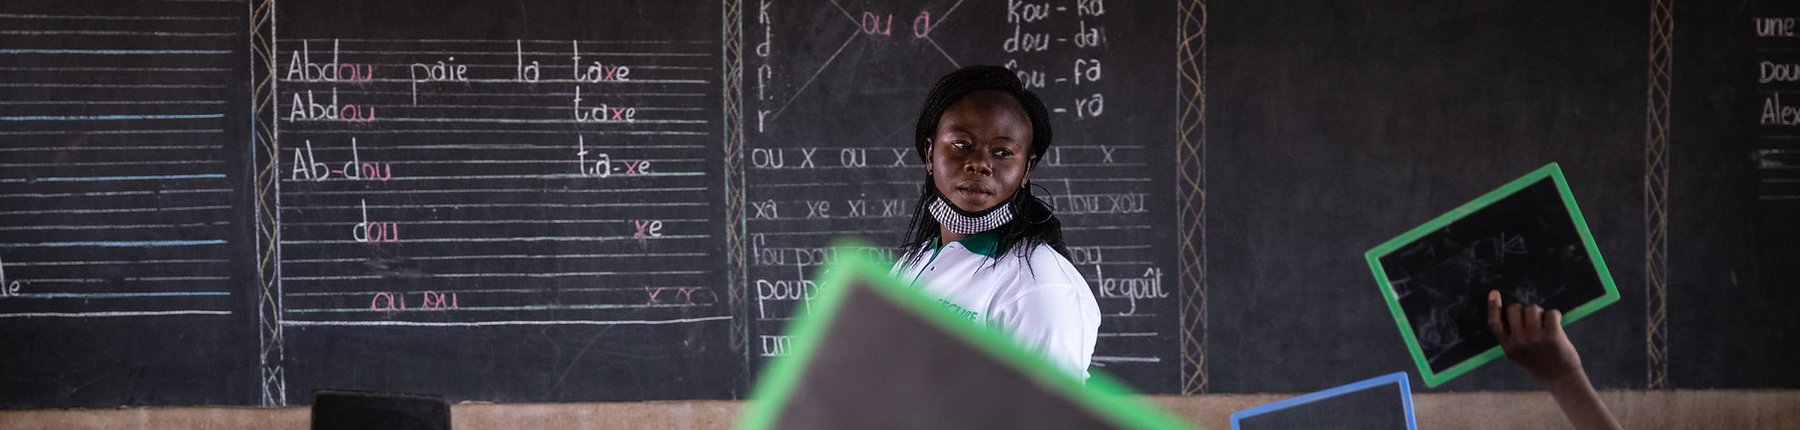 le
Abdou paie la taxe
Abdou taxe
Ab-dou ta-xe
dou xe
ou ou x x
k
d
f
r
ou a
kou - ka
dou - da
fou - fa
- ra
ou x ou x u x
xa xe xi xu dou xou
fou pou cou ou
poup le goût
un
une
Dou
Alex